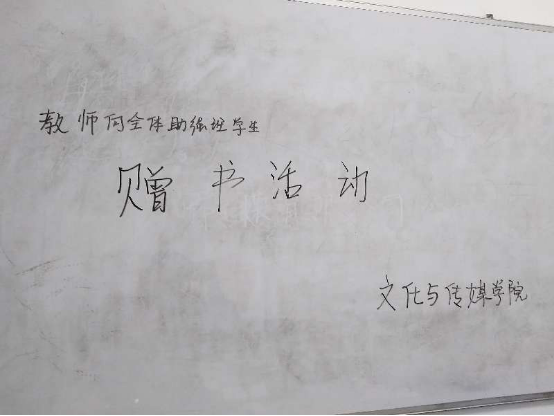 教师向全体助强班学生
赠书活动
文化与传媒学院